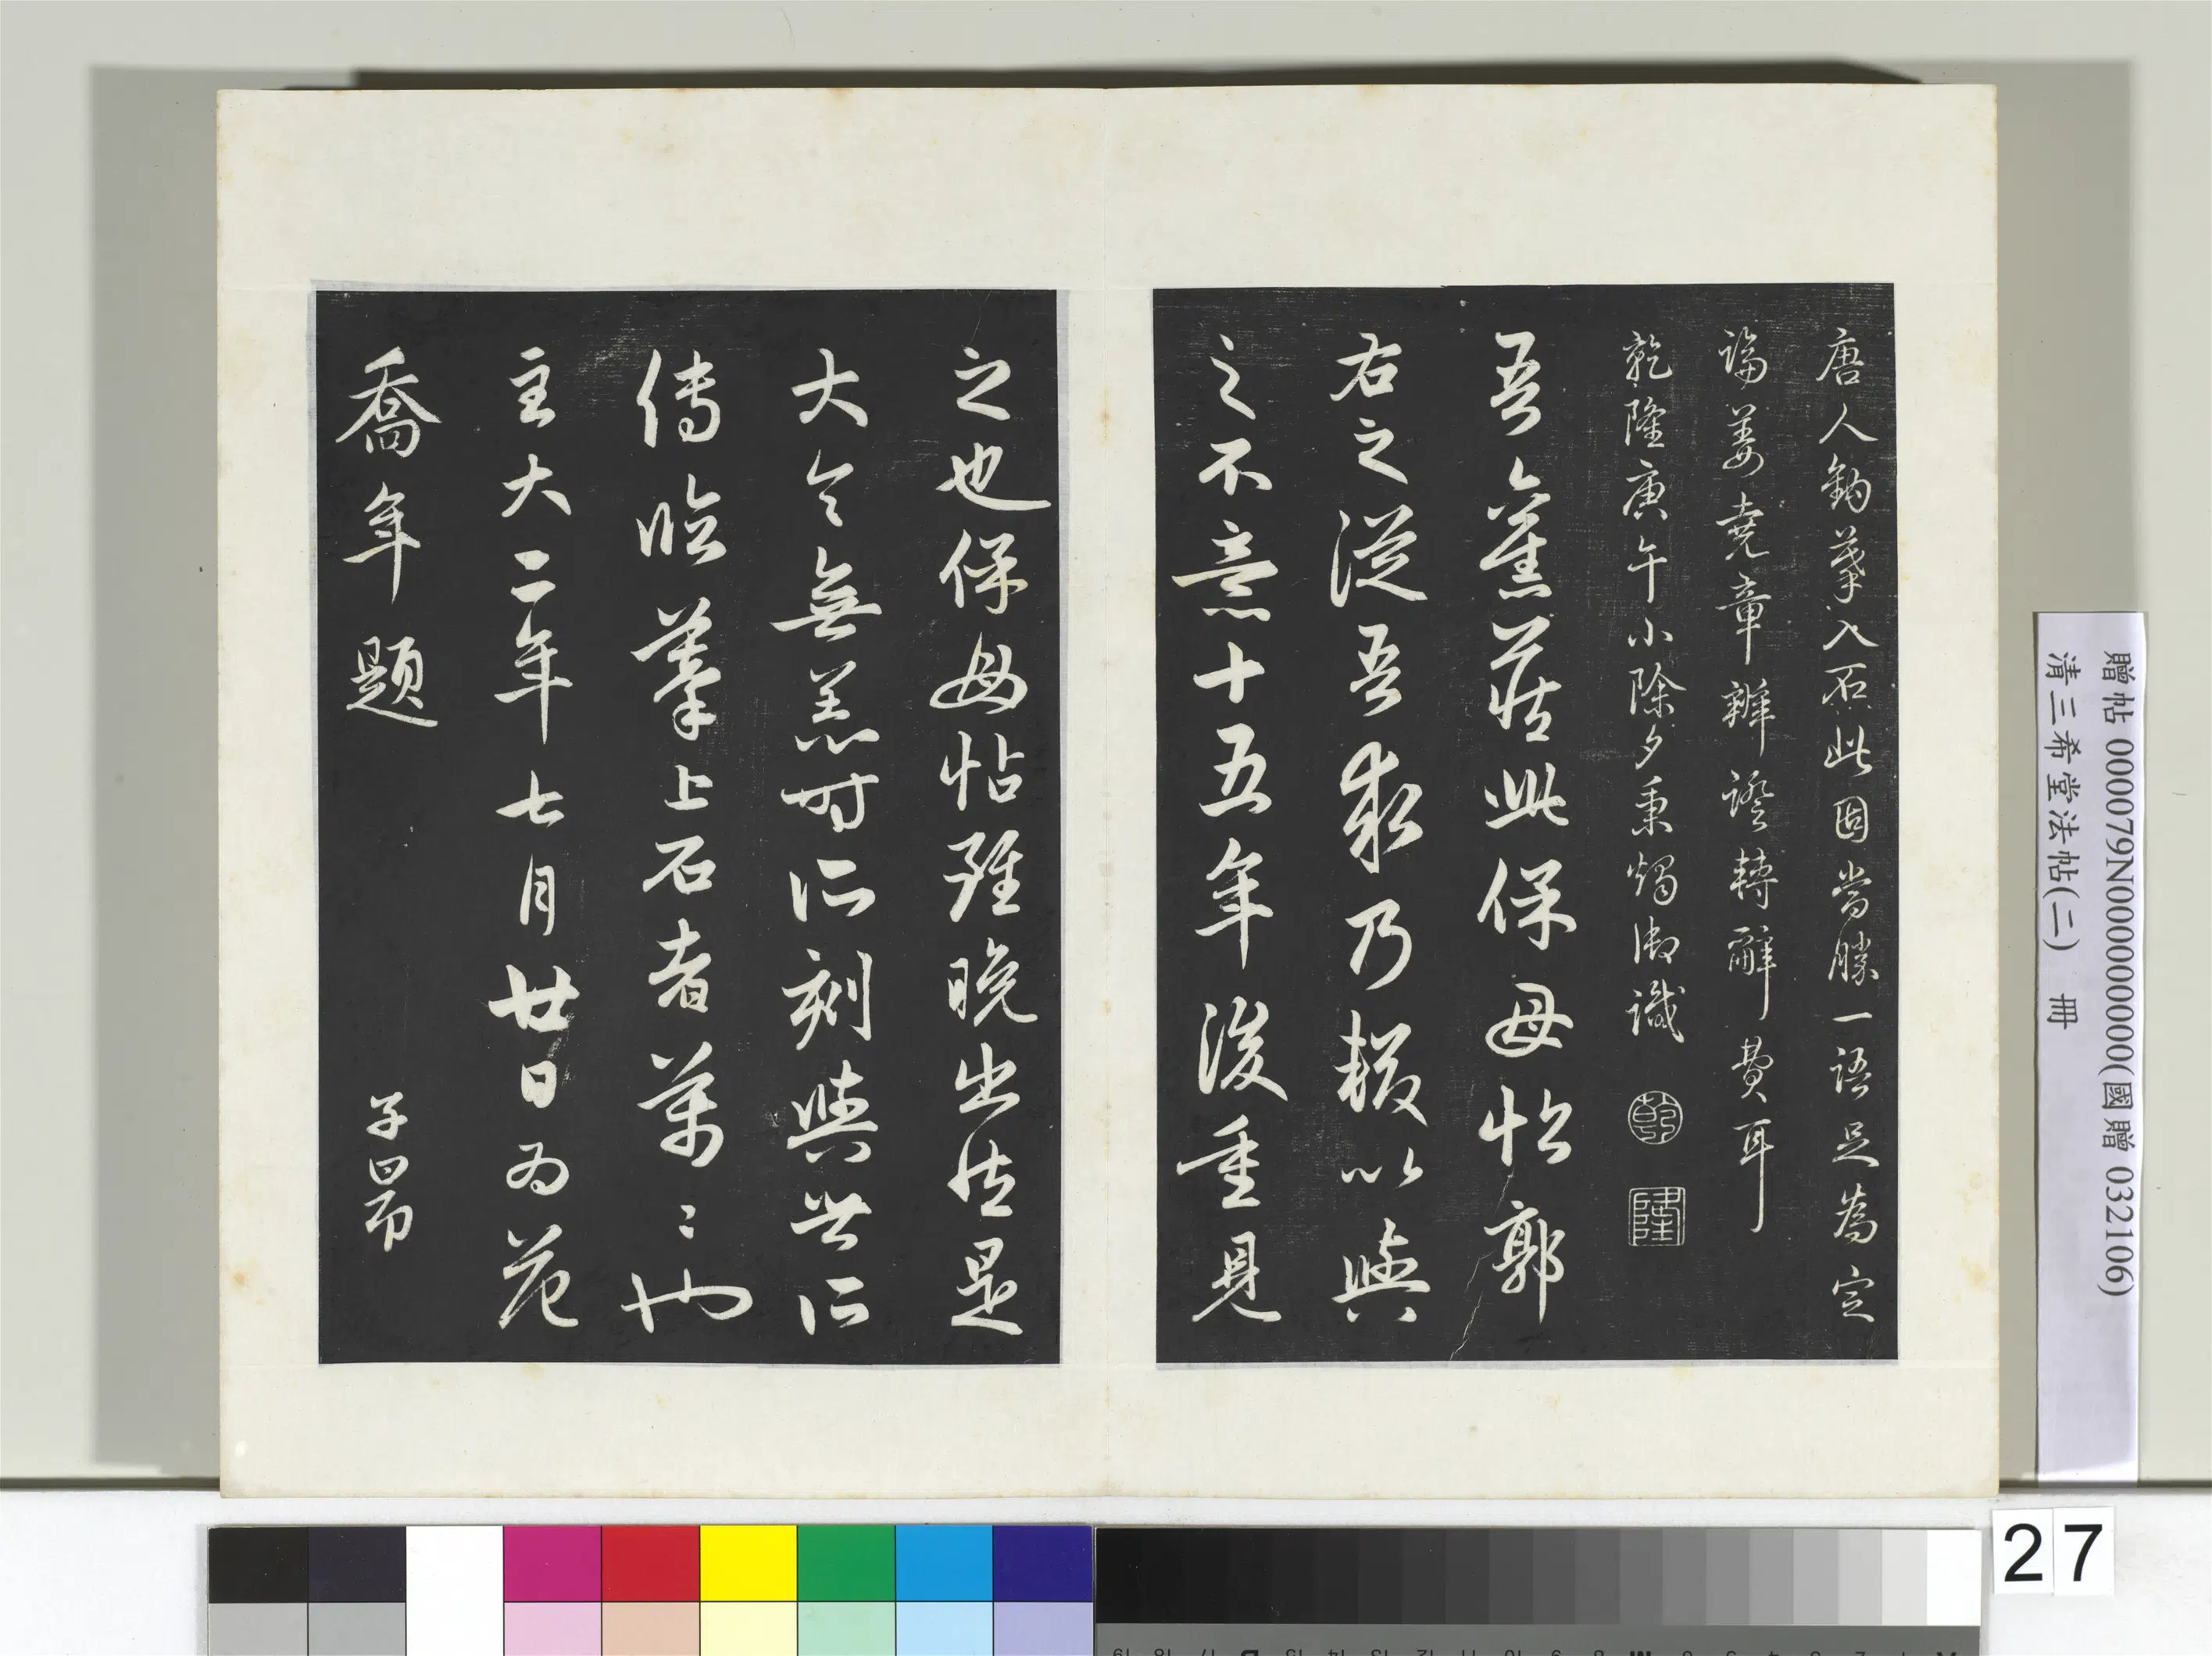 唐人鈎摹入石此固當勝一語足為定
論姜堯章辨證轉辭費耳
乾隆庚午小除夕秉燭御識
乾
隆
吾舊藏此保母帖郭
右之從吾求乃輟以與
之不意十五年後重見
之也保母帖雖晚出然是
大令無恙時所刻與世所
傳臨摹上石者萬萬也
至大二年七月廿日為范
喬年題
子昂
贈帖 000079N000000000(國贈 032106)
清三希堂法帖(二) 冊
27